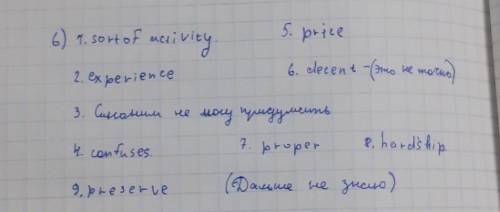 6) 1. sort of acivity. 5. price
2. experience 6. decent - (это не точно)
3. Синоним не могу придумать
4. confuses 7. proper 8. hardship
9. preserve (Дальше не знаю)